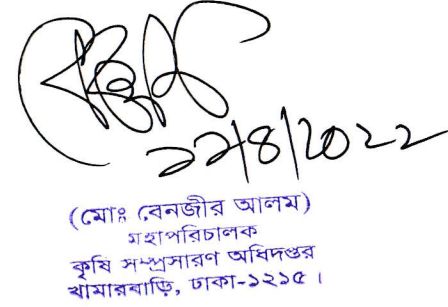 ২২/৪/২০২২
(মোঃ বেনজীর আলম)
মহাপরিচালক
কৃষি সম্প্রসারণ অধিদপ্তর
খামারবাড়ি, ঢাকা-১২১৫।